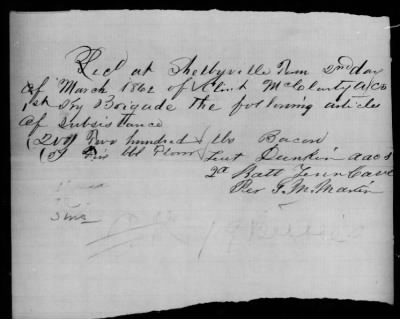 Recd at Shelbyville Tenn 2nd day
of March 1862 of Clint McClarty ACS
1st Ky Brigade the following articles
of subsistance
(200) Two hundred lbs Bacon
bbl Flour
Lieut Dunkin aacs
2d Batt Tenn Cav
Per J. M. Martin